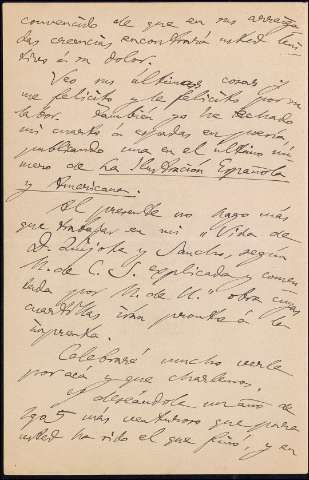 convencido de que en sus arraiga
das creencias encontrará usted leni
tivos á su dolor.
Veo sus últimas cosas y
me felicito y le felicito por su
labor. También yo he echado
mi cuarto á espadas en poesía,
publicando una en el último nú
mero de La Ilustración Española
y Americana.
Al presente no hago más
que trabajar en mi "Vida de
D. Quijote y Sancho, según
M. de C. S. explicada y comen
tada por M. de U." obra cuyas
cuartillas irán pronto á la
imprenta.
Celebraré mucho verle
por acá y que charlemos.
Y deseándole un año de
1905 más venturoso que para
usted ha sido el que finó, y en